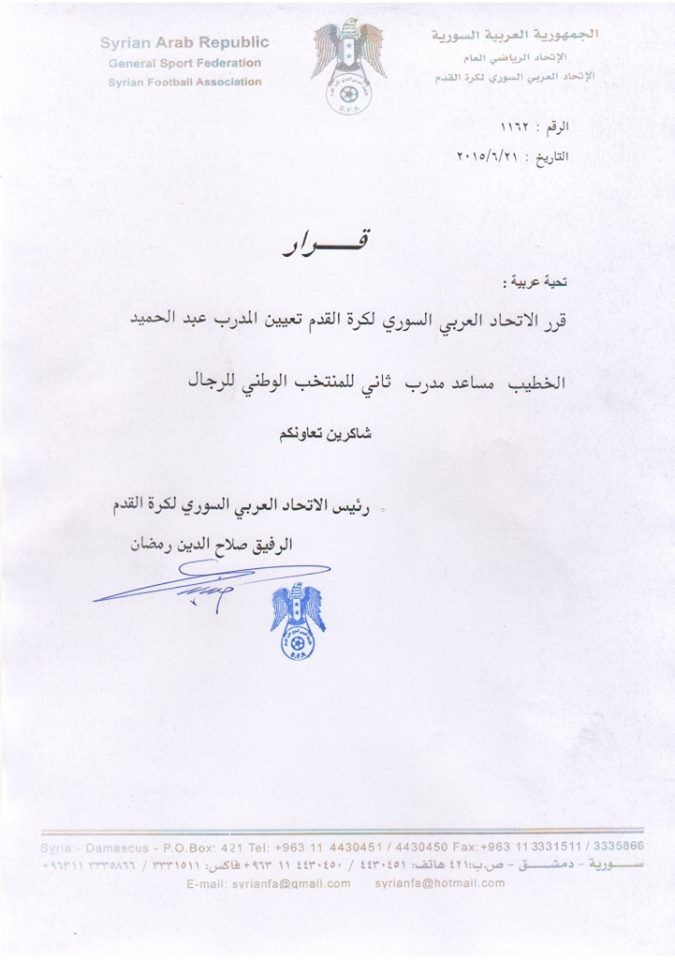 Syrian Arab Republic
General Sport Federation
Syrian Football Association
الجمهورية العربية السورية
الإتحاد الرياضي العام
الإتحاد العربي السوري لكرة القدم
S.F.A
الرقم : ١١٦٢
التاريخ : ٢٠١٥/٦/٢١
قـــرار
تحية عربية :
قرر الاتحاد العربي السوري لكرة القدم تعيين المدرب عبد الحميد
الخطيب مساعد مدرب ثاني للمنتخب الوطني للرجال
شاكرين تعاونكم
رئيس الاتحاد العربي السوري لكرة القدم
الرفيق صلاح الدين رمضان
S.F.A
Syria - Damascus - P.O.Box: 421 Tel: +963 11 4430451 / 4430450 Fax:+963 11 3331511 / 3335866
ســـورية - دمشــــق - ص.ب:٤٢١ هاتف: ٤٤٣٠٤٥١ / ٤٤٣٠٤٥٠ ١١ ٩٦٣+ فاكس: ٣٣٣١٥١١ / ٣٣٣٥٨٦٦ ٩٦٣١١+
E-mail: syrianfa@gmail.com syrianfa@hotmail.com